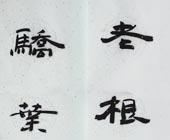 老根
驕葉